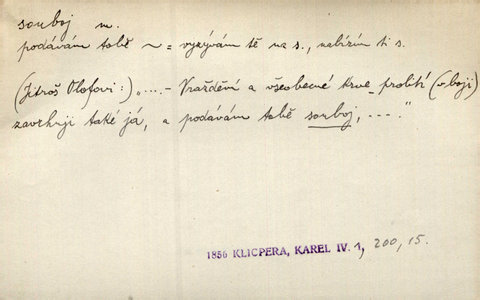 souboj m.
podávám tobě ~ = vyzývám tě na s., nabízím ti s.
(Jitroš Olofovi:) „....- Vraždění a všeobecné krve_prolití (v boji)
zavrhuji také já, a podávám tobě souboj, ...."
1856 KLICPERA, KAREL IV. 1, 200, 15.